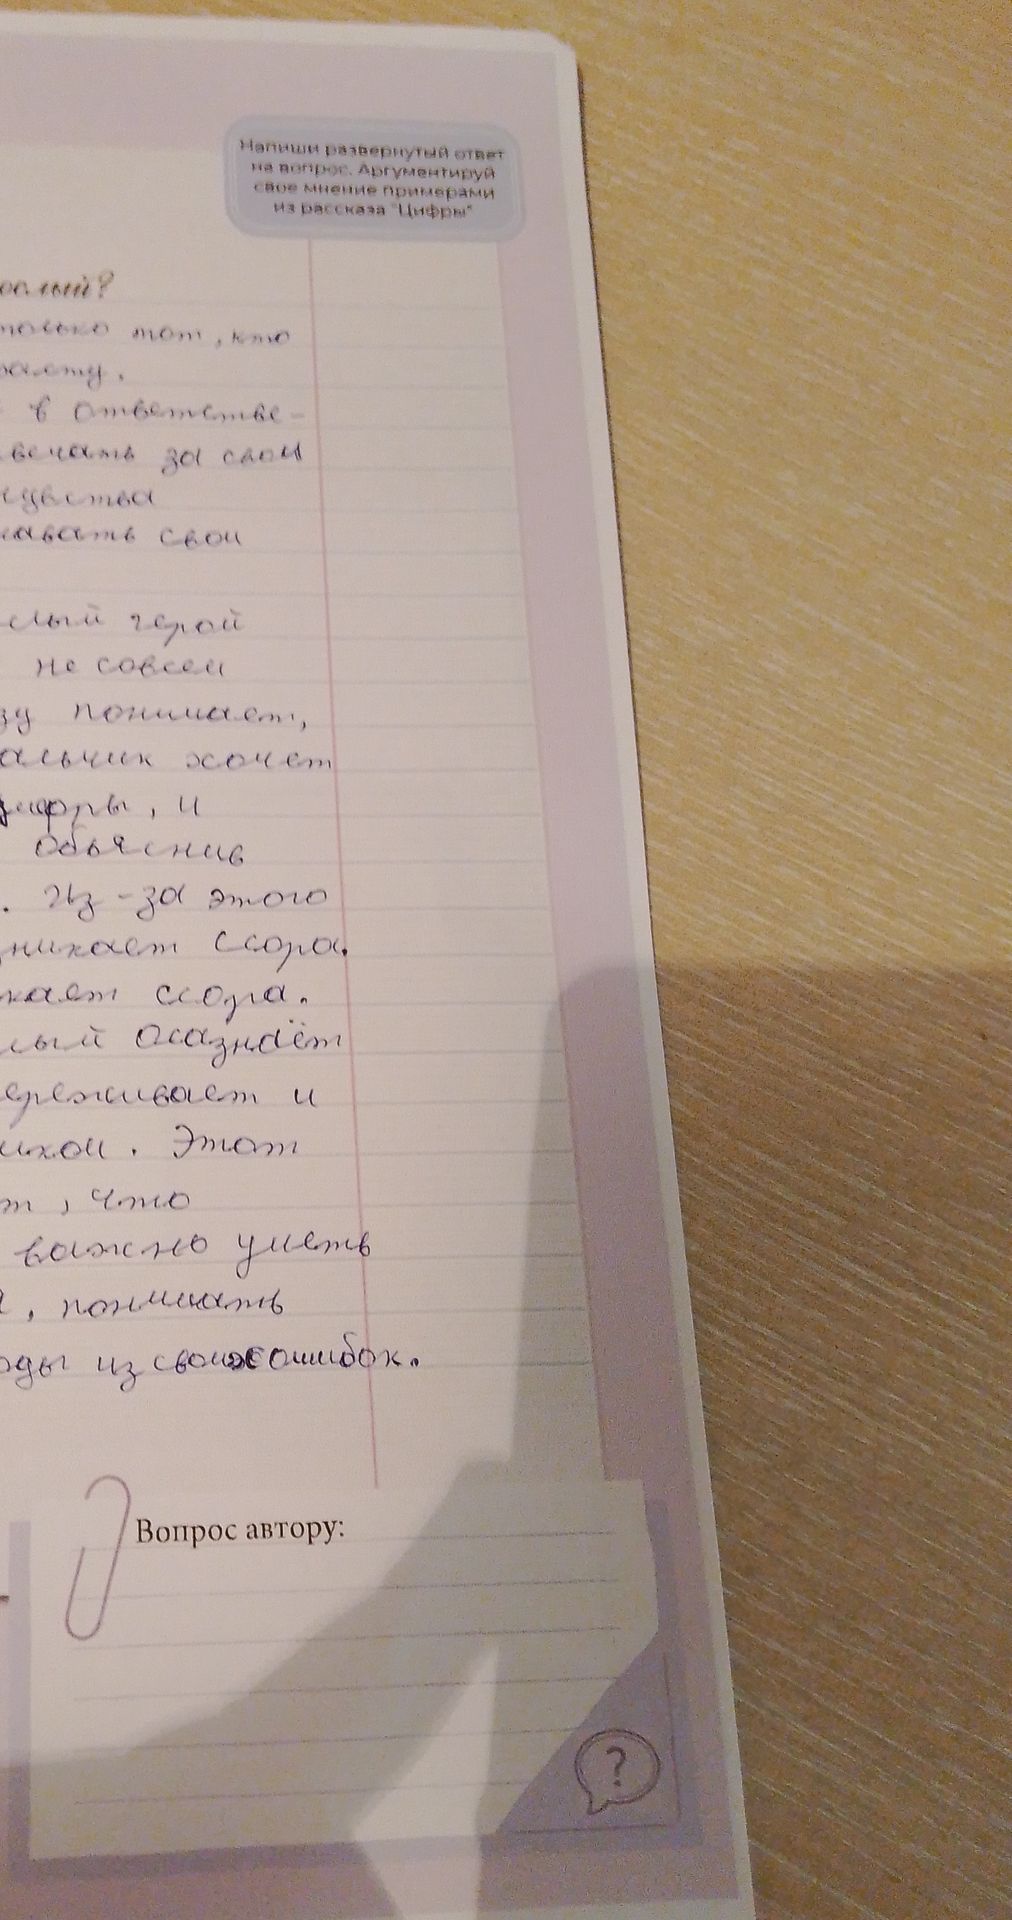 Напиши развернутый ответ
на вопрос. Аргументируй
свое мнение примерами
из рассказа "Цифры"
рослый?
только тот, кто
расту.
в ответстве-
вечать за свои
чувства
навать свои
слый герой
не совсем
зу понимает,
альчик хочет
цифры, и
объяснив
. Из-за этого
зникает ссора.
кает ссора.
лый осазнаёт
ереживает и
иком. Этот
т, что
важно уметь
, понимать
оды из своих ошибок.
Вопрос автору:
?